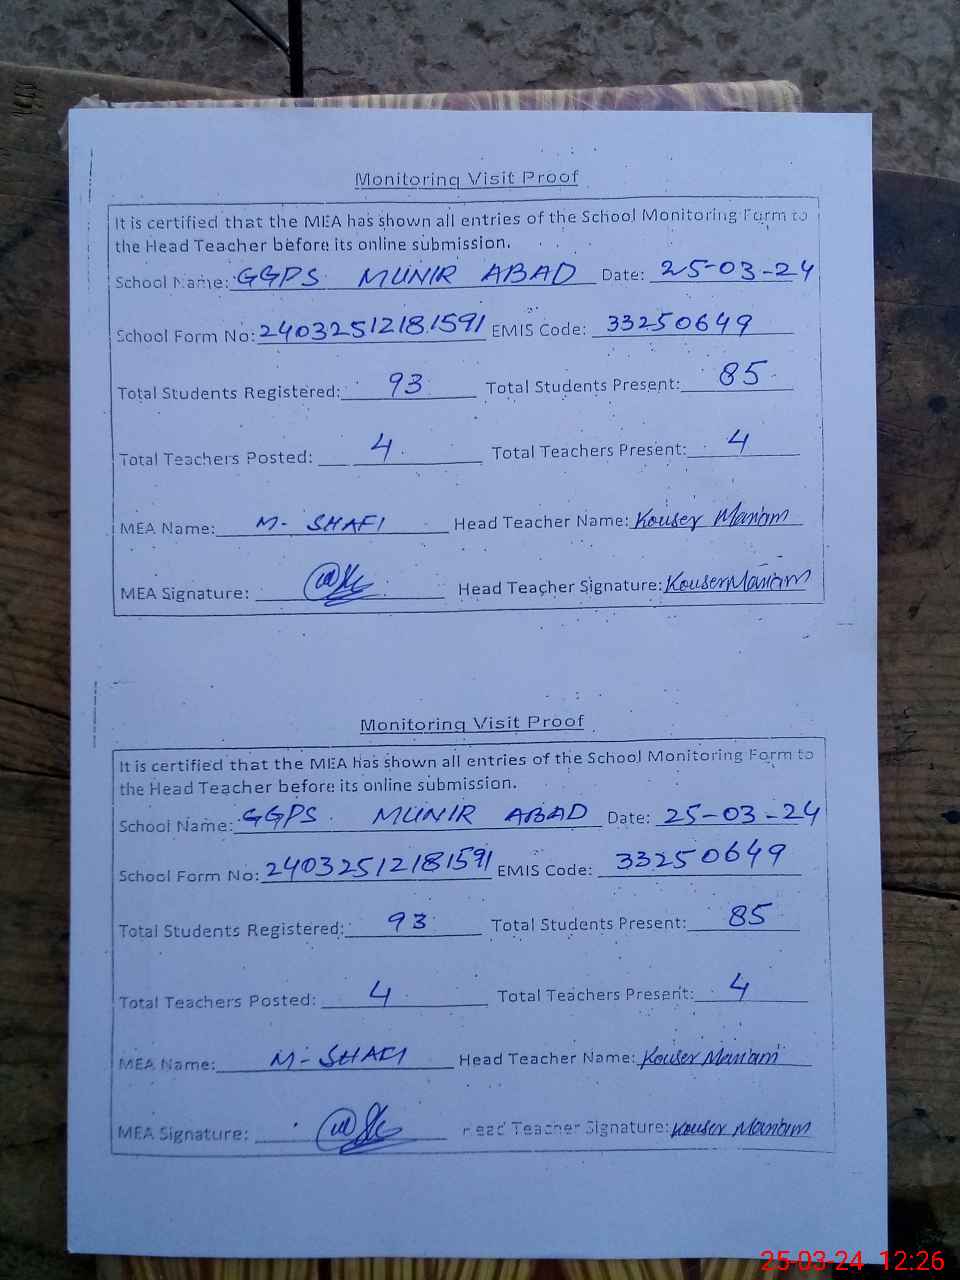 Monitoring Visit Proof
It is certified that the MEA has shown all entries of the School Monitoring Form to
the Head Teacher before its online submission.
School Name: GGPS MUNIR ABAD Date: 25-03-24
School Form No: 24032512181591 EMIS Code: 33250649
Total Students Registered: 93 Total Students Present: 85
Total Teachers Posted: 4 Total Teachers Present: 4
MEA Name: M- SHAFI Head Teacher Name: Kouser Mariam
MEA Signature: Head Teacher Signature: Kouser Mariam
Monitoring Visit Proof
It is certified that the MEA has shown all entries of the School Monitoring Form to
the Head Teacher before its online submission.
School Name: GGPS MUNIR ABAD Date: 25-03-24
School Form No: 24032512181591 EMIS Code: 33250649
Total Students Registered: 93 Total Students Present: 85
Total Teachers Posted: 4 Total Teachers Present: 4
MEA Name: M- SHAFI Head Teacher Name: Kouser Mariam
MEA Signature: Head Teacher Signature: Kouser Mariam
25-03-24 12:26